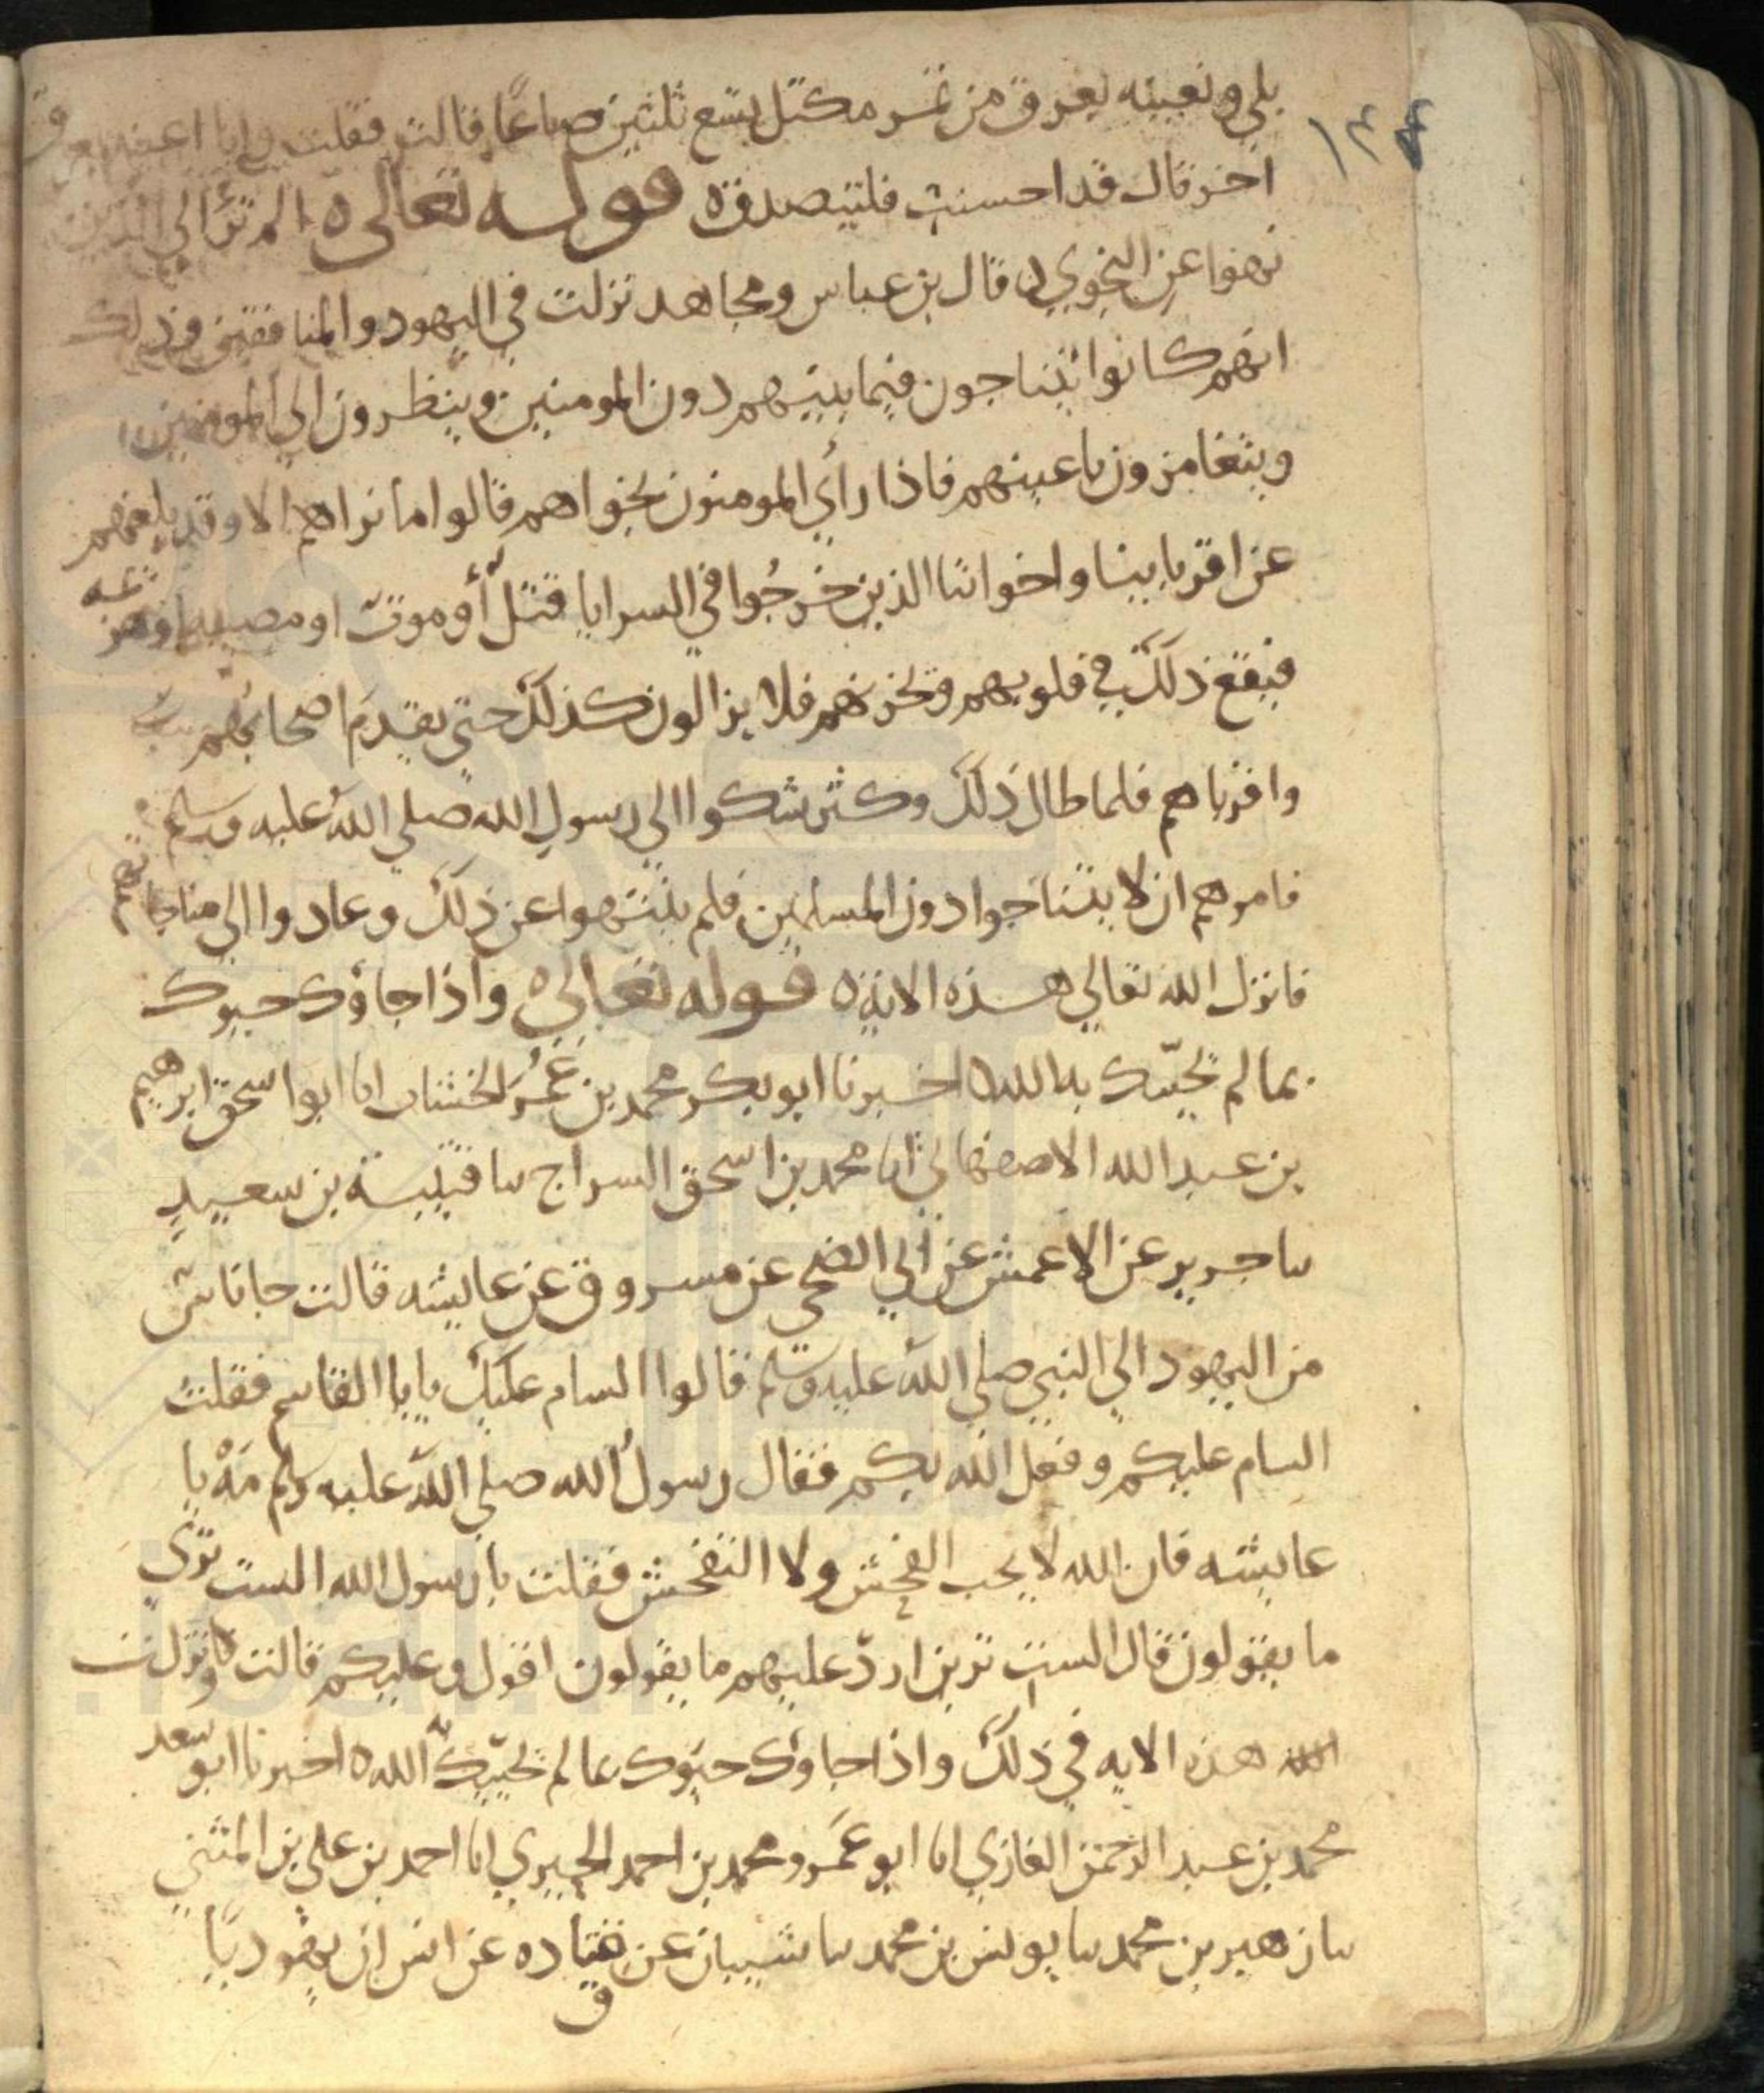 ١٣٤
بلي ونعينه بعرق من تمر مكتل يسع ثلثين صاعًا قالت فقلت وانا اعينه بعرق
اخر قال قد احسنت فليتصدق ه قوله تعالى ه الم تر الي الذين
نهوا عن النجوي ه قال بن عباس ومجاهد نزلت في اليهود والمنافقين وذلك
انهم كانوا يتناجون فيما بينهم دون المومنين وينظرون الي المومنين
ويتغامزون باعينهم فاذا راي المومنون نجواهم قالوا ما نراهم الا وقد بلغهم
عن اقربايينا واخواننا الذين خرجُوا في السرايا قتل أو موت او مصيبه او هزيمة
فيقع ذلك في قلوبهم وتحزنهم فلا يزالون كذلك حتي يقدم اصحابهم
واقرباهم فلما طال ذلك وكثر شكوا الي رسول الله صلي الله عليه وسلم
فامرهم ان لا يتناجوا دون المسلمين فلم ينتهوا عن ذلك وعادوا الي مناجاتهم
فانزل الله تعالي هذه الاية ه قوله تعالى ه واذا جاؤك حيوك
بما لم يحيّك به الله ه اخبرنا ابو بكر محمد بن عُمَر الخشاب انا ابو اسحق ابرهيم
بن عبد الله الاصفهاني انا محمد بن اسحق السراج سا قتيبة بن سعيد
سا جرير عن الاعمش عن ابي الضحي عن مسروق عن عايشه قالت جا ناس
من اليهود الي النبي صلي الله عليه وسلم فقالوا السام عليك يابا القاسم فقلت
السام عليكم وفعل الله بكم فقال رسولُ الله صلي الله عليه وسلم مَهْ يا
عايشه فان الله لا يحب الفحش ولا التفحش فقلت يا رسول الله الست تري
ما يقولون قال الست ترين اردّ عليهم ما يقولون اقول وعليكم قالت ونزلت
هذه الايه في ذلك واذا جاوك حيّوك بما لم يحيّيك الله ه اخبرنا ابو سعد
محمد بن عبد الرحمن الغازي انا ابو عَمرو محمد بن احمد الحيري انا احمد بن علي بن المثني
سا زهير بن محمد سا يونس بن محمد سا شيبان عن قتاده عن انس ان يهوديًا